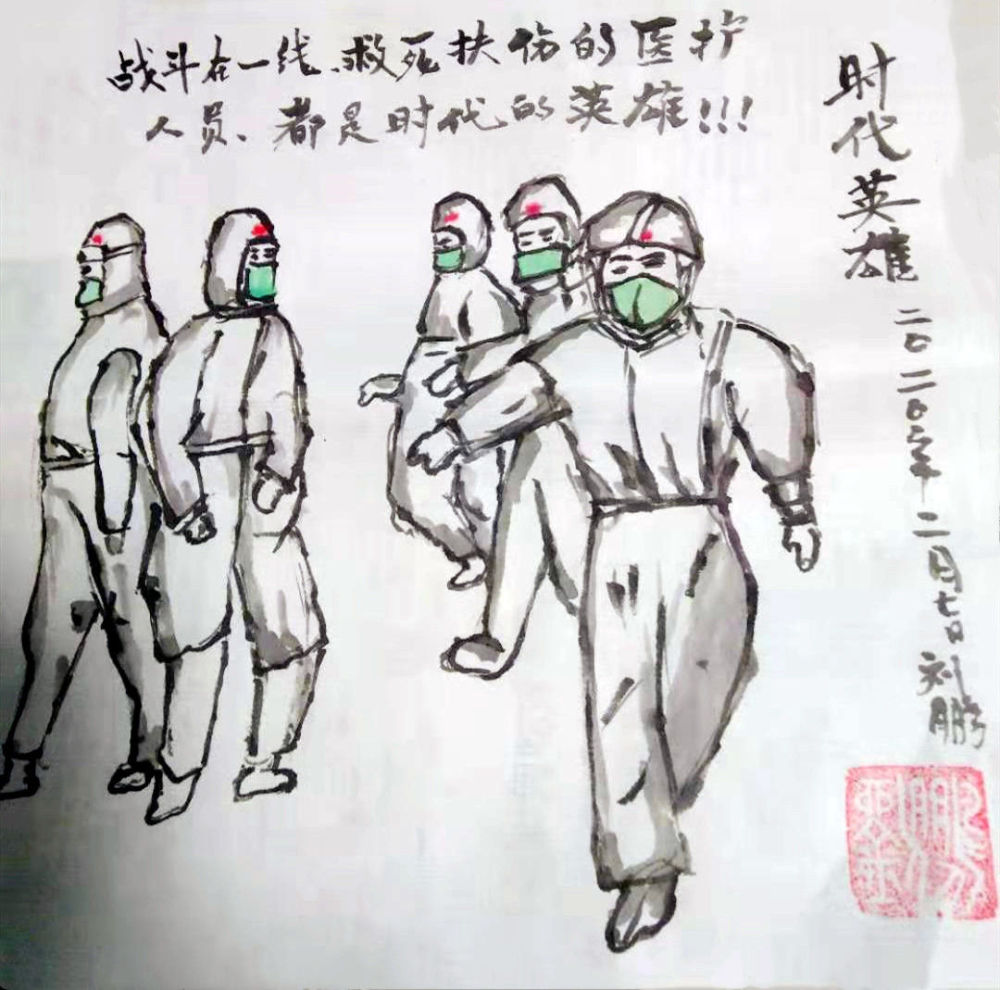 战斗在一线、救死扶伤的医护
人员、都是时代的英雄!!!
时代英雄
二〇二〇年二月七日刘鹏